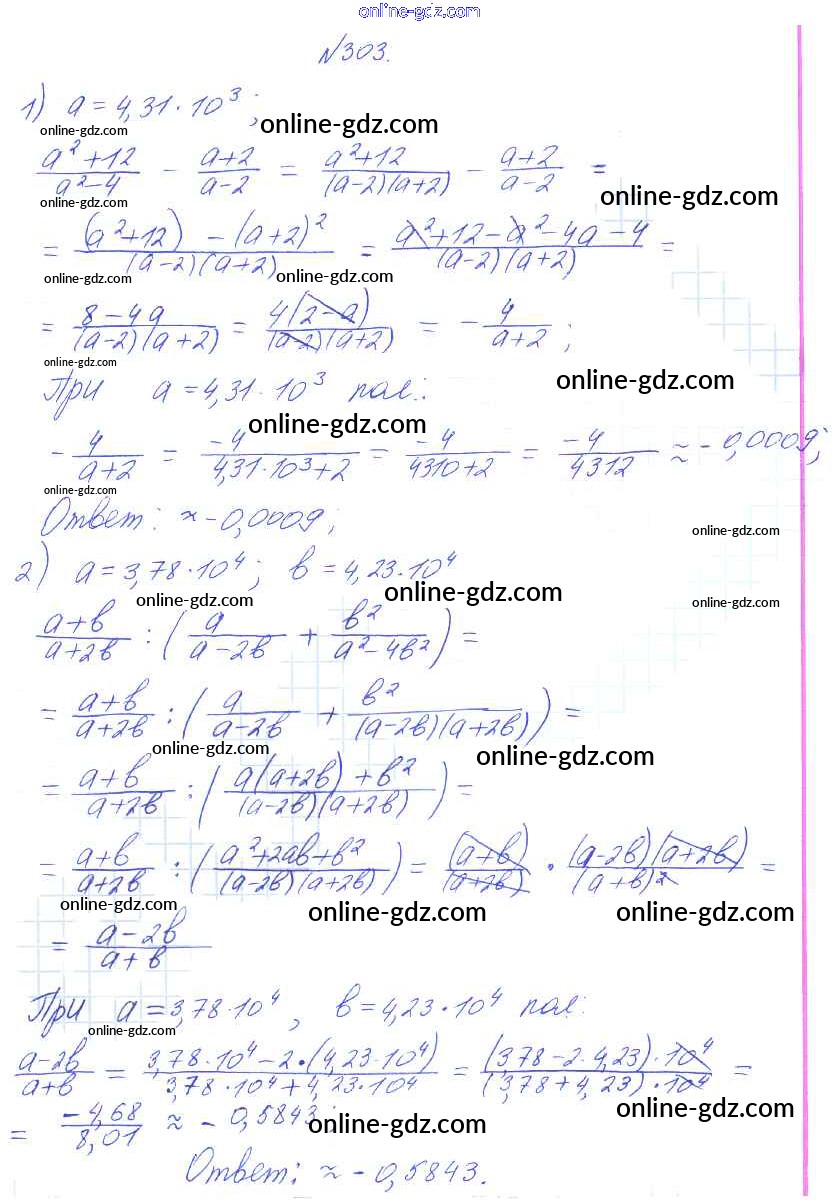 online-gdz.com
№303.
1) a = 4,31·10³;
online-gdz.com online-gdz.com
(a²+12)/(a²-4) - (a+2)/(a-2) = (a²+12)/((a-2)(a+2)) - (a+2)/(a-2) =
online-gdz.com online-gdz.com
= ((a²+12) - (a+2)²)/((a-2)(a+2)) = (a²+12-a²-4a-4)/((a-2)(a+2)) =
online-gdz.com online-gdz.com
= (8-4a)/((a-2)(a+2)) = (4(2-a))/((a-2)(a+2)) = - 4/(a+2);
online-gdz.com
При a = 4,31·10³ пол.:
online-gdz.com
online-gdz.com
- 4/(a+2) = -4/(4,31·10³+2) = -4/(4310+2) = -4/4312 ≈ -0,0009;
online-gdz.com
Ответ: ≈ -0,0009;
online-gdz.com
2) a = 3,78·10⁴; в = 4,23·10⁴
online-gdz.com online-gdz.com online-gdz.com
(a+в)/(a+2в) : (a/(a-2в) + в²/(a²-4в²)) =
= (a+в)/(a+2в) : (a/(a-2в) + в²/((a-2в)(a+2в))) =
online-gdz.com online-gdz.com
= (a+в)/(a+2в) : ((a(a+2в)+в²)/((a-2в)(a+2в))) =
= (a+в)/(a+2в) : ((a²+2aв+в²)/((a-2в)(a+2в))) = (a+в)/(a+2в) · ((a-2в)(a+2в))/(a+в)² =
online-gdz.com online-gdz.com online-gdz.com
= (a-2в)/(a+в)
При a = 3,78·10⁴, в = 4,23·10⁴ пол:
online-gdz.com
(a-2в)/(a+в) = (3,78·10⁴-2·(4,23·10⁴))/(3,78·10⁴+4,23·10⁴) = ((3,78-2·4,23)·10⁴)/((3,78+4,23)·10⁴) =
online-gdz.com
= -4,68/8,01 ≈ -0,5843;
online-gdz.com
Ответ: ≈ -0,5843.